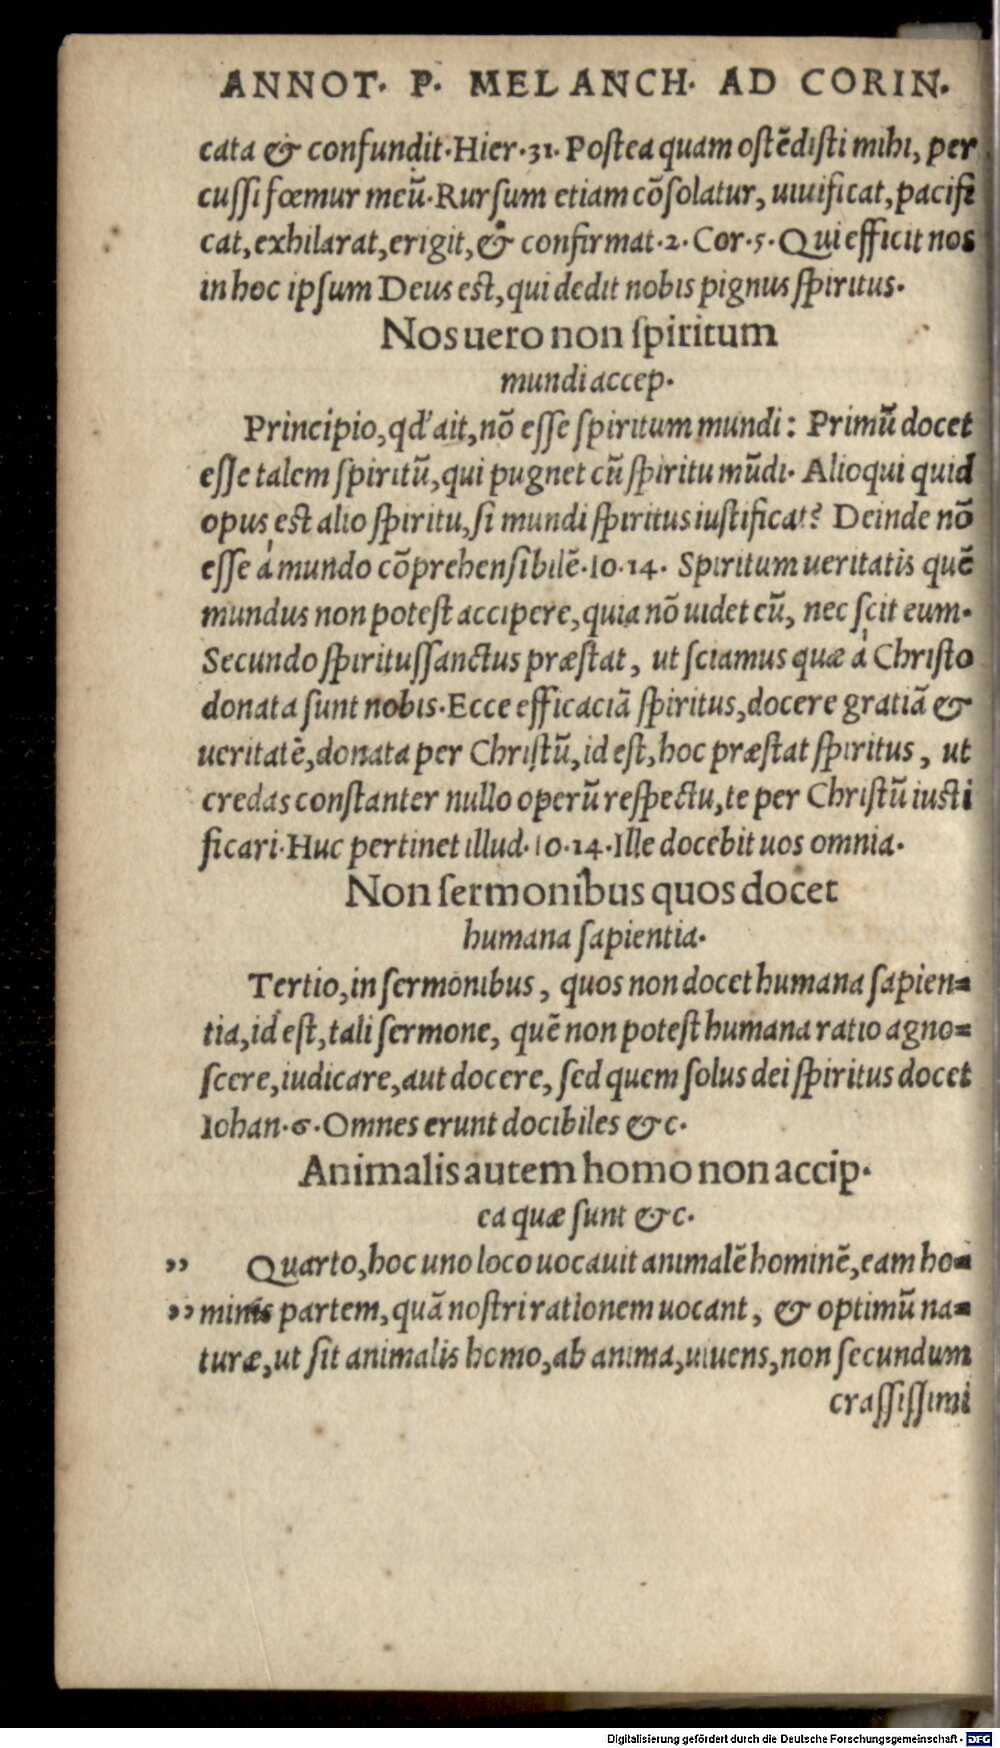 ANNOT. P. MELANCH. AD CORIN.
cata & confundit. Hier. 31. Postea quam ostēdisti mihi, per
cussi fœmur meū. Rursum etiam cōsolatur, uiuificat, pacifi
cat, exhilarat, erigit, & confirmat. 2. Cor. 5. Qui efficit nos
in hoc ipsum Deus est, qui dedit nobis pignus spiritus.
Nos uero non spiritum
mundi accep.
Principio, qd' ait, nō esse spiritum mundi: Primū docet
esse talem spiritū, qui pugnet cū spiritu mūdi. Alioqui quid
opus est alio spiritu, si mundi spiritus iustificat? Deinde nō
esse à mundo cōprehensibilē. Io. 14. Spiritum ueritatis quē
mundus non potest accipere, quia nō uidet eū, nec scit eum.
Secundo spiritussanctus præstat, ut sciamus quæ à Christo
donata sunt nobis. Ecce efficaciā spiritus, docere gratiā &
ueritatē, donata per Christū, id est, hoc præstat spiritus, ut
credas constanter nullo operū respectu, te per Christū iusti
ficari. Huc pertinet illud. Io. 14. Ille docebit uos omnia.
Non sermonibus quos docet
humana sapientia.
Tertio, in sermonibus, quos non docet humana sapien=
tia, id est, tali sermone, quē non potest humana ratio agno=
scere, iudicare, aut docere, sed quem solus dei spiritus docet
Iohan. 6. Omnes erunt docibiles &c.
Animalis autem homo non accip.
ea quæ sunt &c.
,, Quarto, hoc uno loco uocauit animalē hominē, eam ho=
,, minis partem, quā nostri rationem uocant, & optimū na=
turæ, ut sit animalis homo, ab anima, uiuens, non secundum
crassissimi
Digitalisierung gefördert durch die Deutsche Forschungsgemeinschaft - DFG